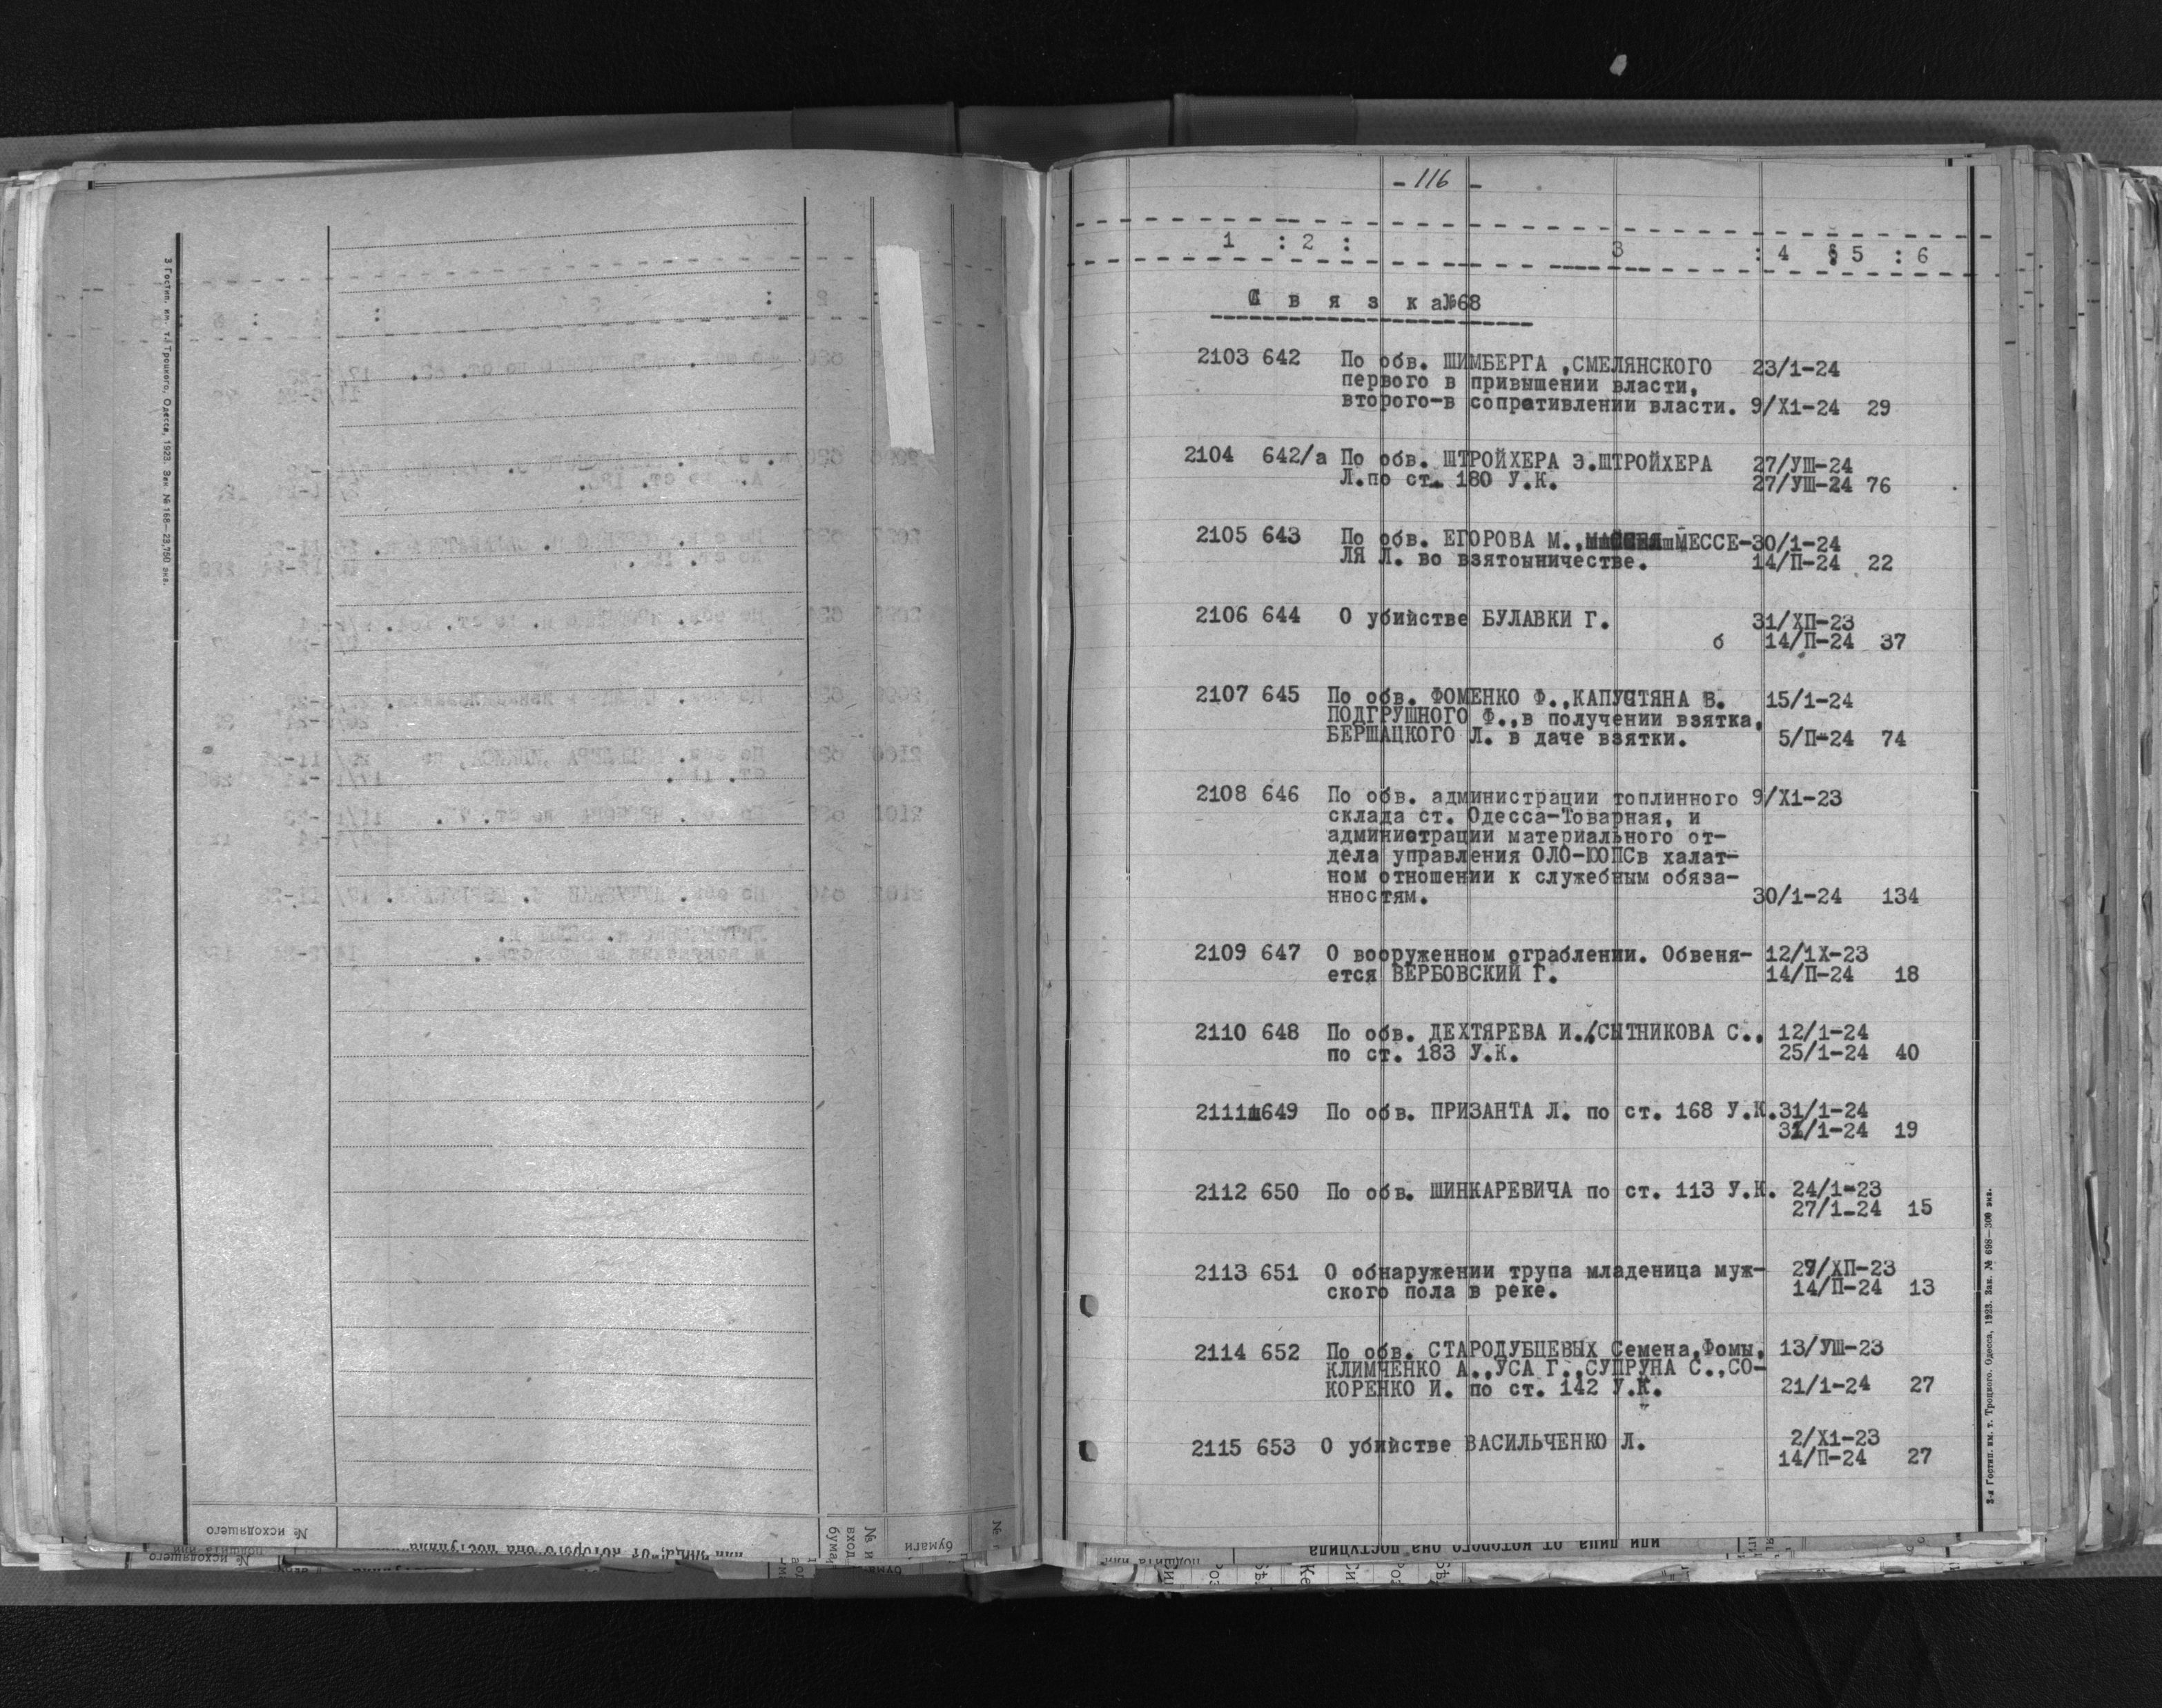 3 Гостип. им. т. Троцкого, Одесса, 1923. Зак. № 168—23,750 экз.
№ исходящего
- 116 -
1 : 2 : 3 : 4 : 5 : 6
С в я з к а №68
2103 642 По обв. ШИМБЕРГА ,СМЕЛЯНСКОГО 23/1-24
первого в привышении власти,
второго-в сопративлении власти. 9/Х1-24 29
2104 642/а По обв. ШТРОЙХЕРА Э.ШТРОЙХЕРА 27/УШ-24
Л.по ст. 180 У.К. 27/УШ-24 76
2105 643 По обв. ЕГОРОВА М., МЕССЕ-30/1-24
ЛЯ Л. во взятоыничестве. 14/П-24 22
2106 644 О убийстве БУЛАВКИ Г. 31/ХП-23
б 14/П-24 37
2107 645 По обв. ФОМЕНКО Ф.,КАПУСТЯНА В. 15/1-24
ПОДГРУШНОГО Ф.,в получении взятка,
БЕРШАЦКОГО Л. в даче взятки. 5/П-24 74
2108 646 По обв. администрации топлинного 9/Х1-23
склада ст. Одесса-Товарная, и
администрации материального от-
дела управления ОЛО-ЮОПСв халат-
ном отношении к служебным обяза-
нностям. 30/1-24 134
2109 647 О вооруженном ограблении. Обвеня- 12/1Х-23
ется ВЕРБОВСКИЙ Г. 14/П-24 18
2110 648 По обв. ДЕХТЯРЕВА И.,СЫТНИКОВА С., 12/1-24
по ст. 183 У.К. 25/1-24 40
2111 649 По обв. ПРИЗАНТА Л. по ст. 168 У.К.31/1-24
31/1-24 19
2112 650 По обв. ШИНКАРЕВИЧА по ст. 113 У.К. 24/1-23
27/1-24 15
2113 651 О обнаружении трупа младеница муж- 27/ХП-23
ского пола в реке. 14/П-24 13
2114 652 По обв. СТАРОДУБЦЕВЫХ Семена,Фомы, 13/УШ-23
КЛИМЧЕНКО А.,УСА Г.,СУПРУНА С.,СО-
КОРЕНКО И. по ст. 142 У.К. 21/1-24 27
2115 653 О убийстве ВАСИЛЬЧЕНКО Л. 2/Х1-23
14/П-24 27
3-я Гостип. им. т. Троцкого. Одесса, 1923. Зак. № 698—300 экз.
или лица от которого она поступила